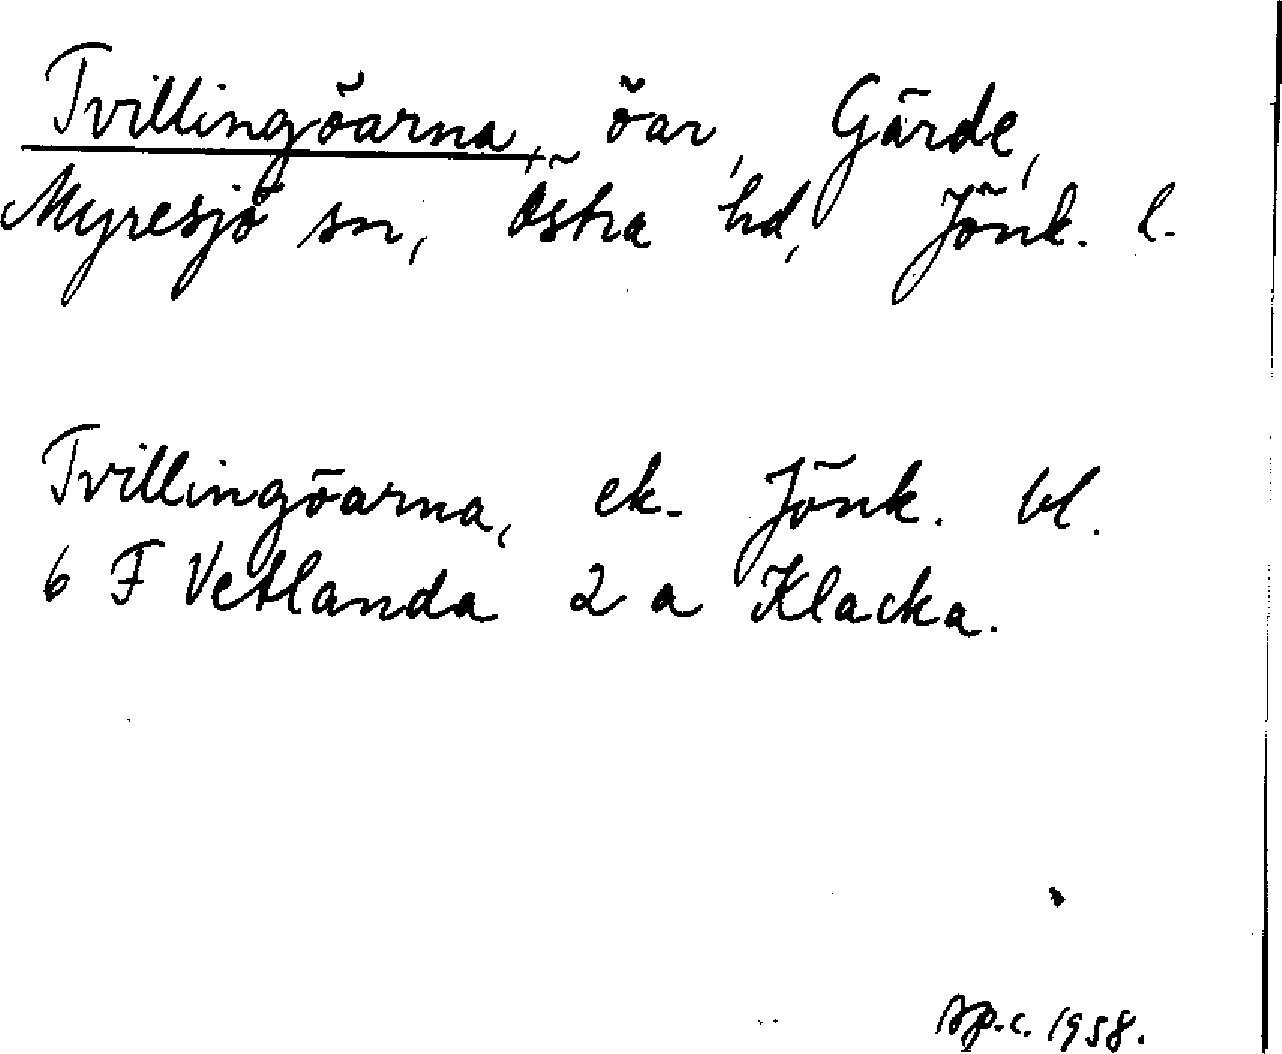 Tvillingöarna, öar, Gärde,
Myresjö sn, Östra hd, Jönk. l.
Tvillingöarna, ek. Jönk. bl.
6 F Vetlanda 2 a Klacka.
sp.c. 1958.